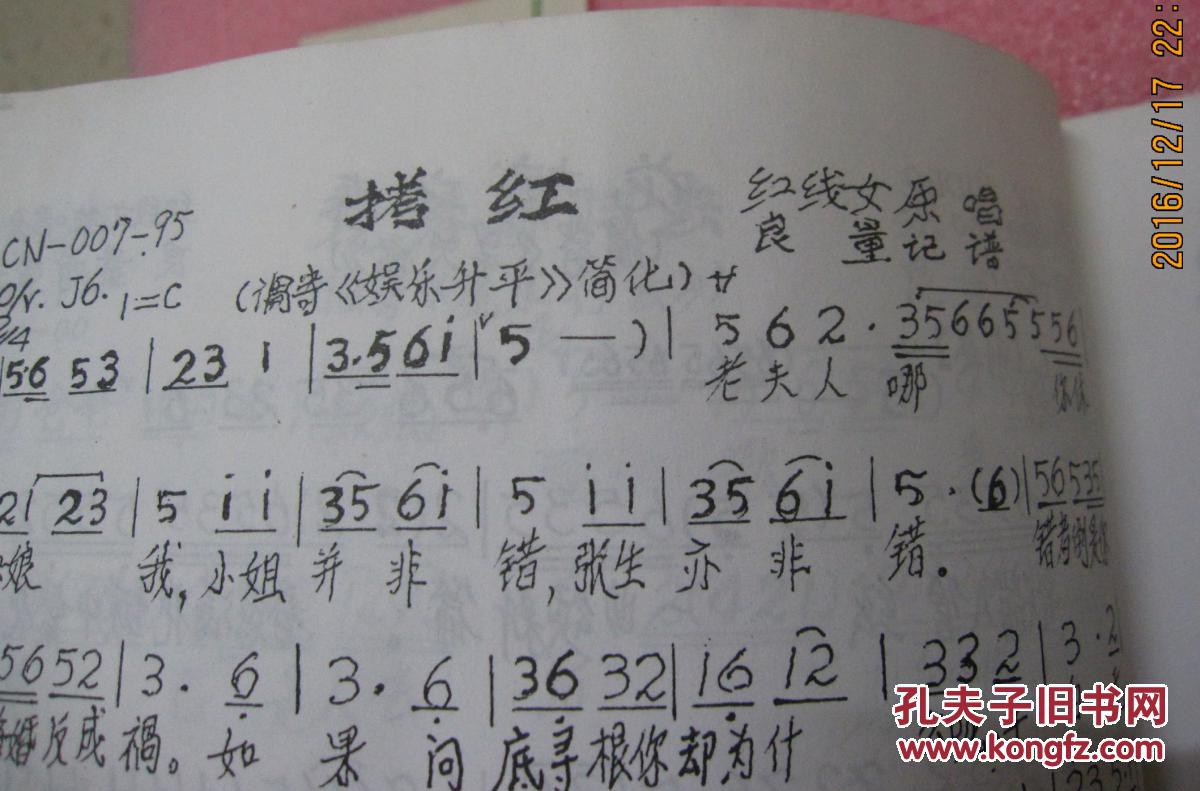 2016/12/17 22:
拷 红
红线女 原 唱
良 量 记 谱
CN-007-95
J6. 1=C (调寄《娱乐升平》简化) サ
5·6 53 | 23 1 | 3·5 6i | 5 — ) | 5 6 2 · 35665556
老夫人 哪
2 23 | 5 i i | 35 6i | 5 i i | 35 6i | 5 · (6) | 56 535
娘 我,小姐 并 非 错,张生 亦 非 错。 错着倒是你
56 52 | 3 · 6 | 3 · 6 | 36 32 | 16 12 | 33 2 | 3 · 2
婚反成 祸。如 果 问 底寻根你却为什
孔夫子旧书网
www.kongfz.com